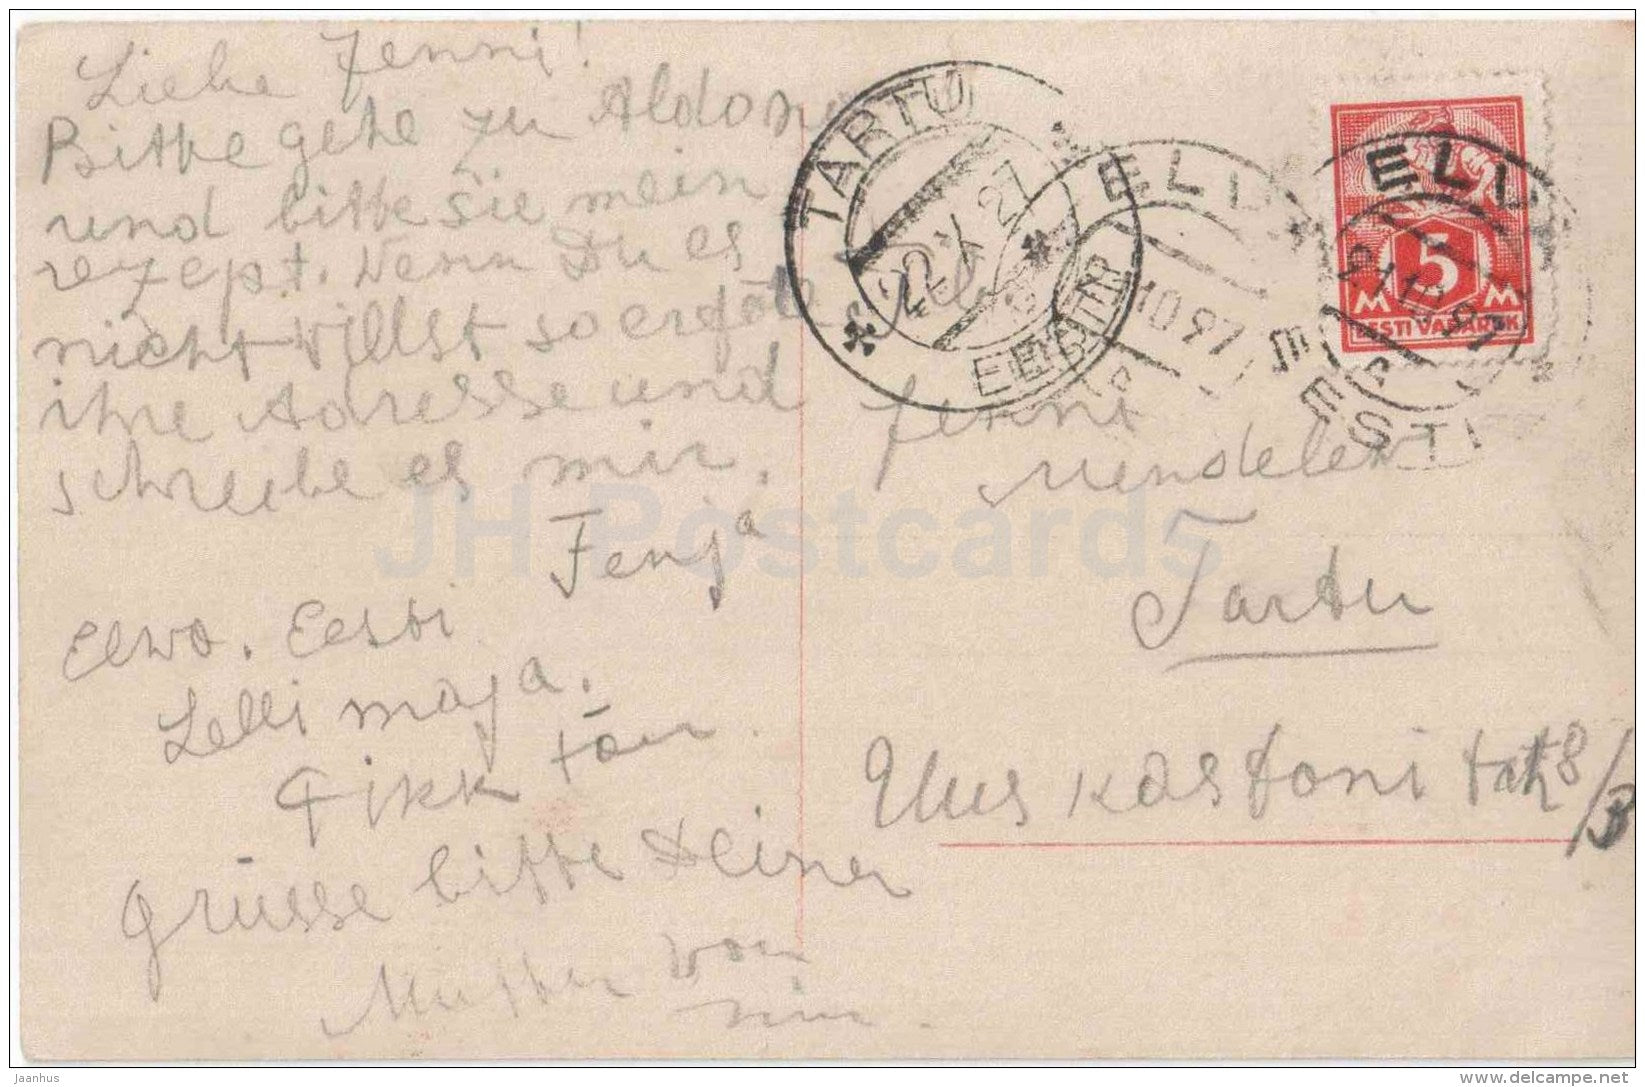 Liebe Jenni!
Bitte gehe zu Aldona
und bitte sie mein
rezept. Wenn Du es
nicht willst so
ihre Adresse und
schreibe es mir.
Fenja
Elwa. Eesti
Lelli maja.
Pikk tän.
Grüsse bitte Deiner
Mutter von
mir.
TARTU
22 X 27
EESTI
ELVA
EESTI
21.10.27
ELVA
EESTI
5
M M
EESTI VABARIIK
Jenni
Mendelev
Tartu
Uus kastani tän 8/
JH Postcards
jaanhus
www.delcampe.net